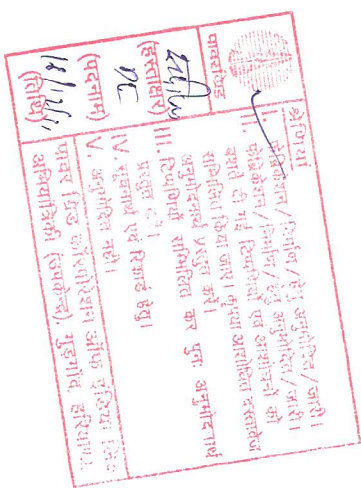 पावरग्रिड
श्रेणियां
I. फेब्रिकेशन / निर्माण / हेतु अनुमोदित / जारी।
II. फेब्रिकेशन / निर्माण / हेतु अनुमोदित / जारी।
बशर्ते की गई टिप्पणियां एवं संशोधनों को
समाविष्ट किया जाए। कृपया संशोधित दस्तावेज
अनुमोदनार्थ प्रस्तुत करें।
III. टिप्पणियां समाविष्ट कर पुनः अनुमोदनार्थ
प्रस्तुत करें।
IV. सूचनार्थ एवं रिकार्ड हेतु।
V. अनुमोदित नहीं।
(हस्ताक्षर)
DC
(पदनाम)
(तिथि)
पावर ग्रिड कारपोरेशन ऑफ इंडिया लि०
अभियांत्रिकी (उपकेन्द्र), गुड़गांव, हरियाणा